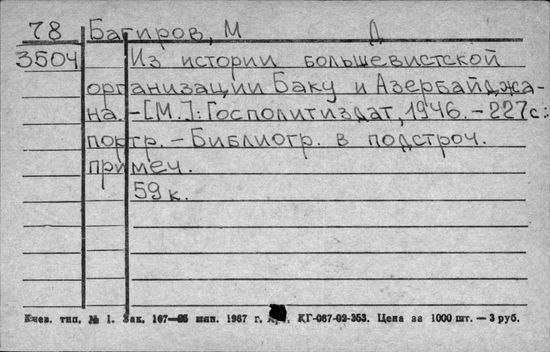 78 Багиров, М Д
3504 Из истории большевистской
организации Баку и Азербайджа-
на. -[М.]: Госполитиздат, 1946. - 227с.:
портр. - Библиогр. в подстроч.
примеч.
59к.
тип. № 1. Зак. 167— 1967 г. КГ-067-02-353. Цена за 1000 шт. — 3 руб.